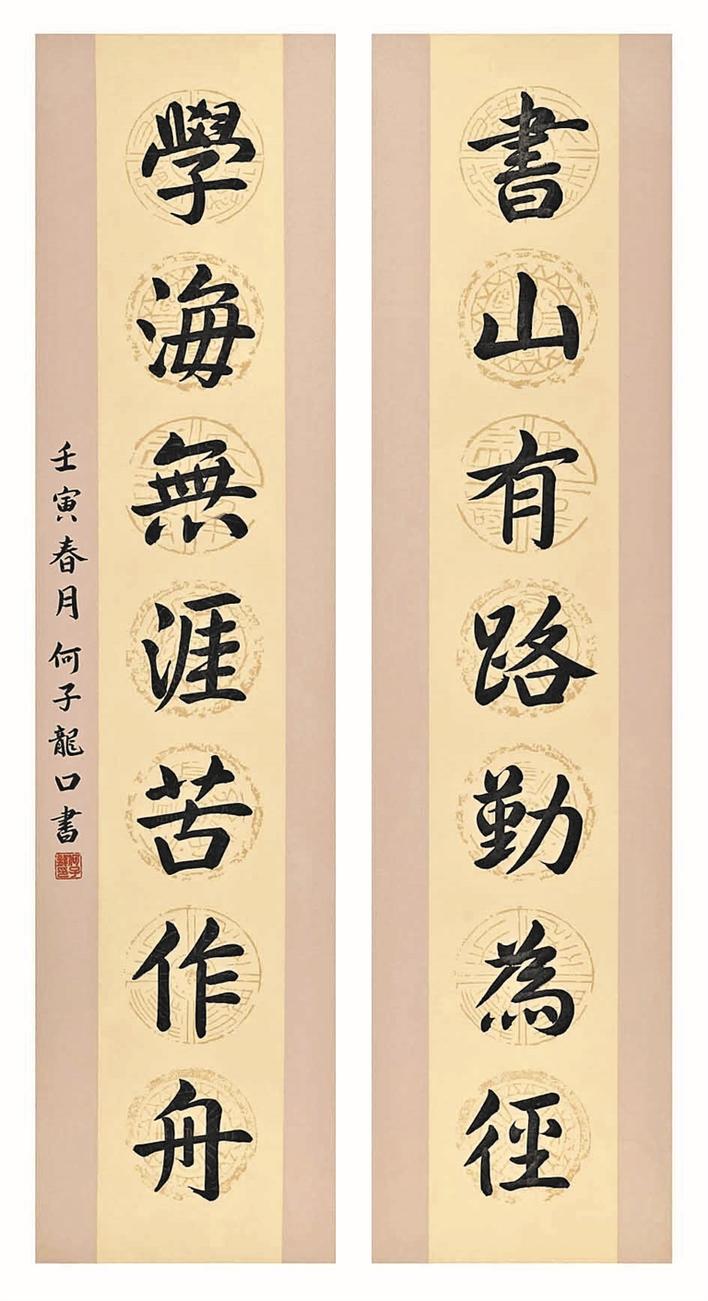 書山有路勤為徑
學海無涯苦作舟
壬寅春月何子龍口書